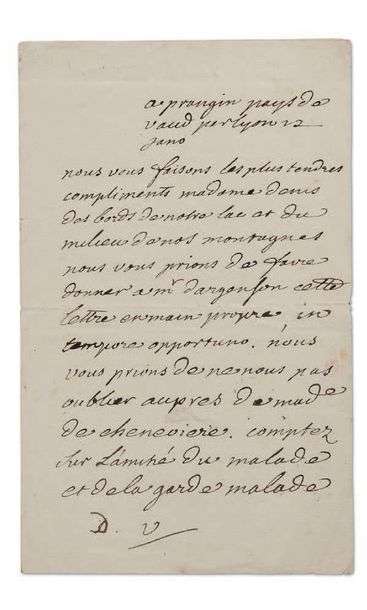 a prangin pays de
vaud par lyon 12
janv
nous vous faisons les plus tendres
compliments madame denis
des bords de notre lac et du
milieu de nos montagnes
nous vous prions de faire
donner a mr dargenson cette
lettre en main propre in
tempore opportuno. nous
vous prions de ne nous pas
oublier aupres de made
de cheneviere. comptez
sur l'amitié du malade
et de la garde malade
D. V